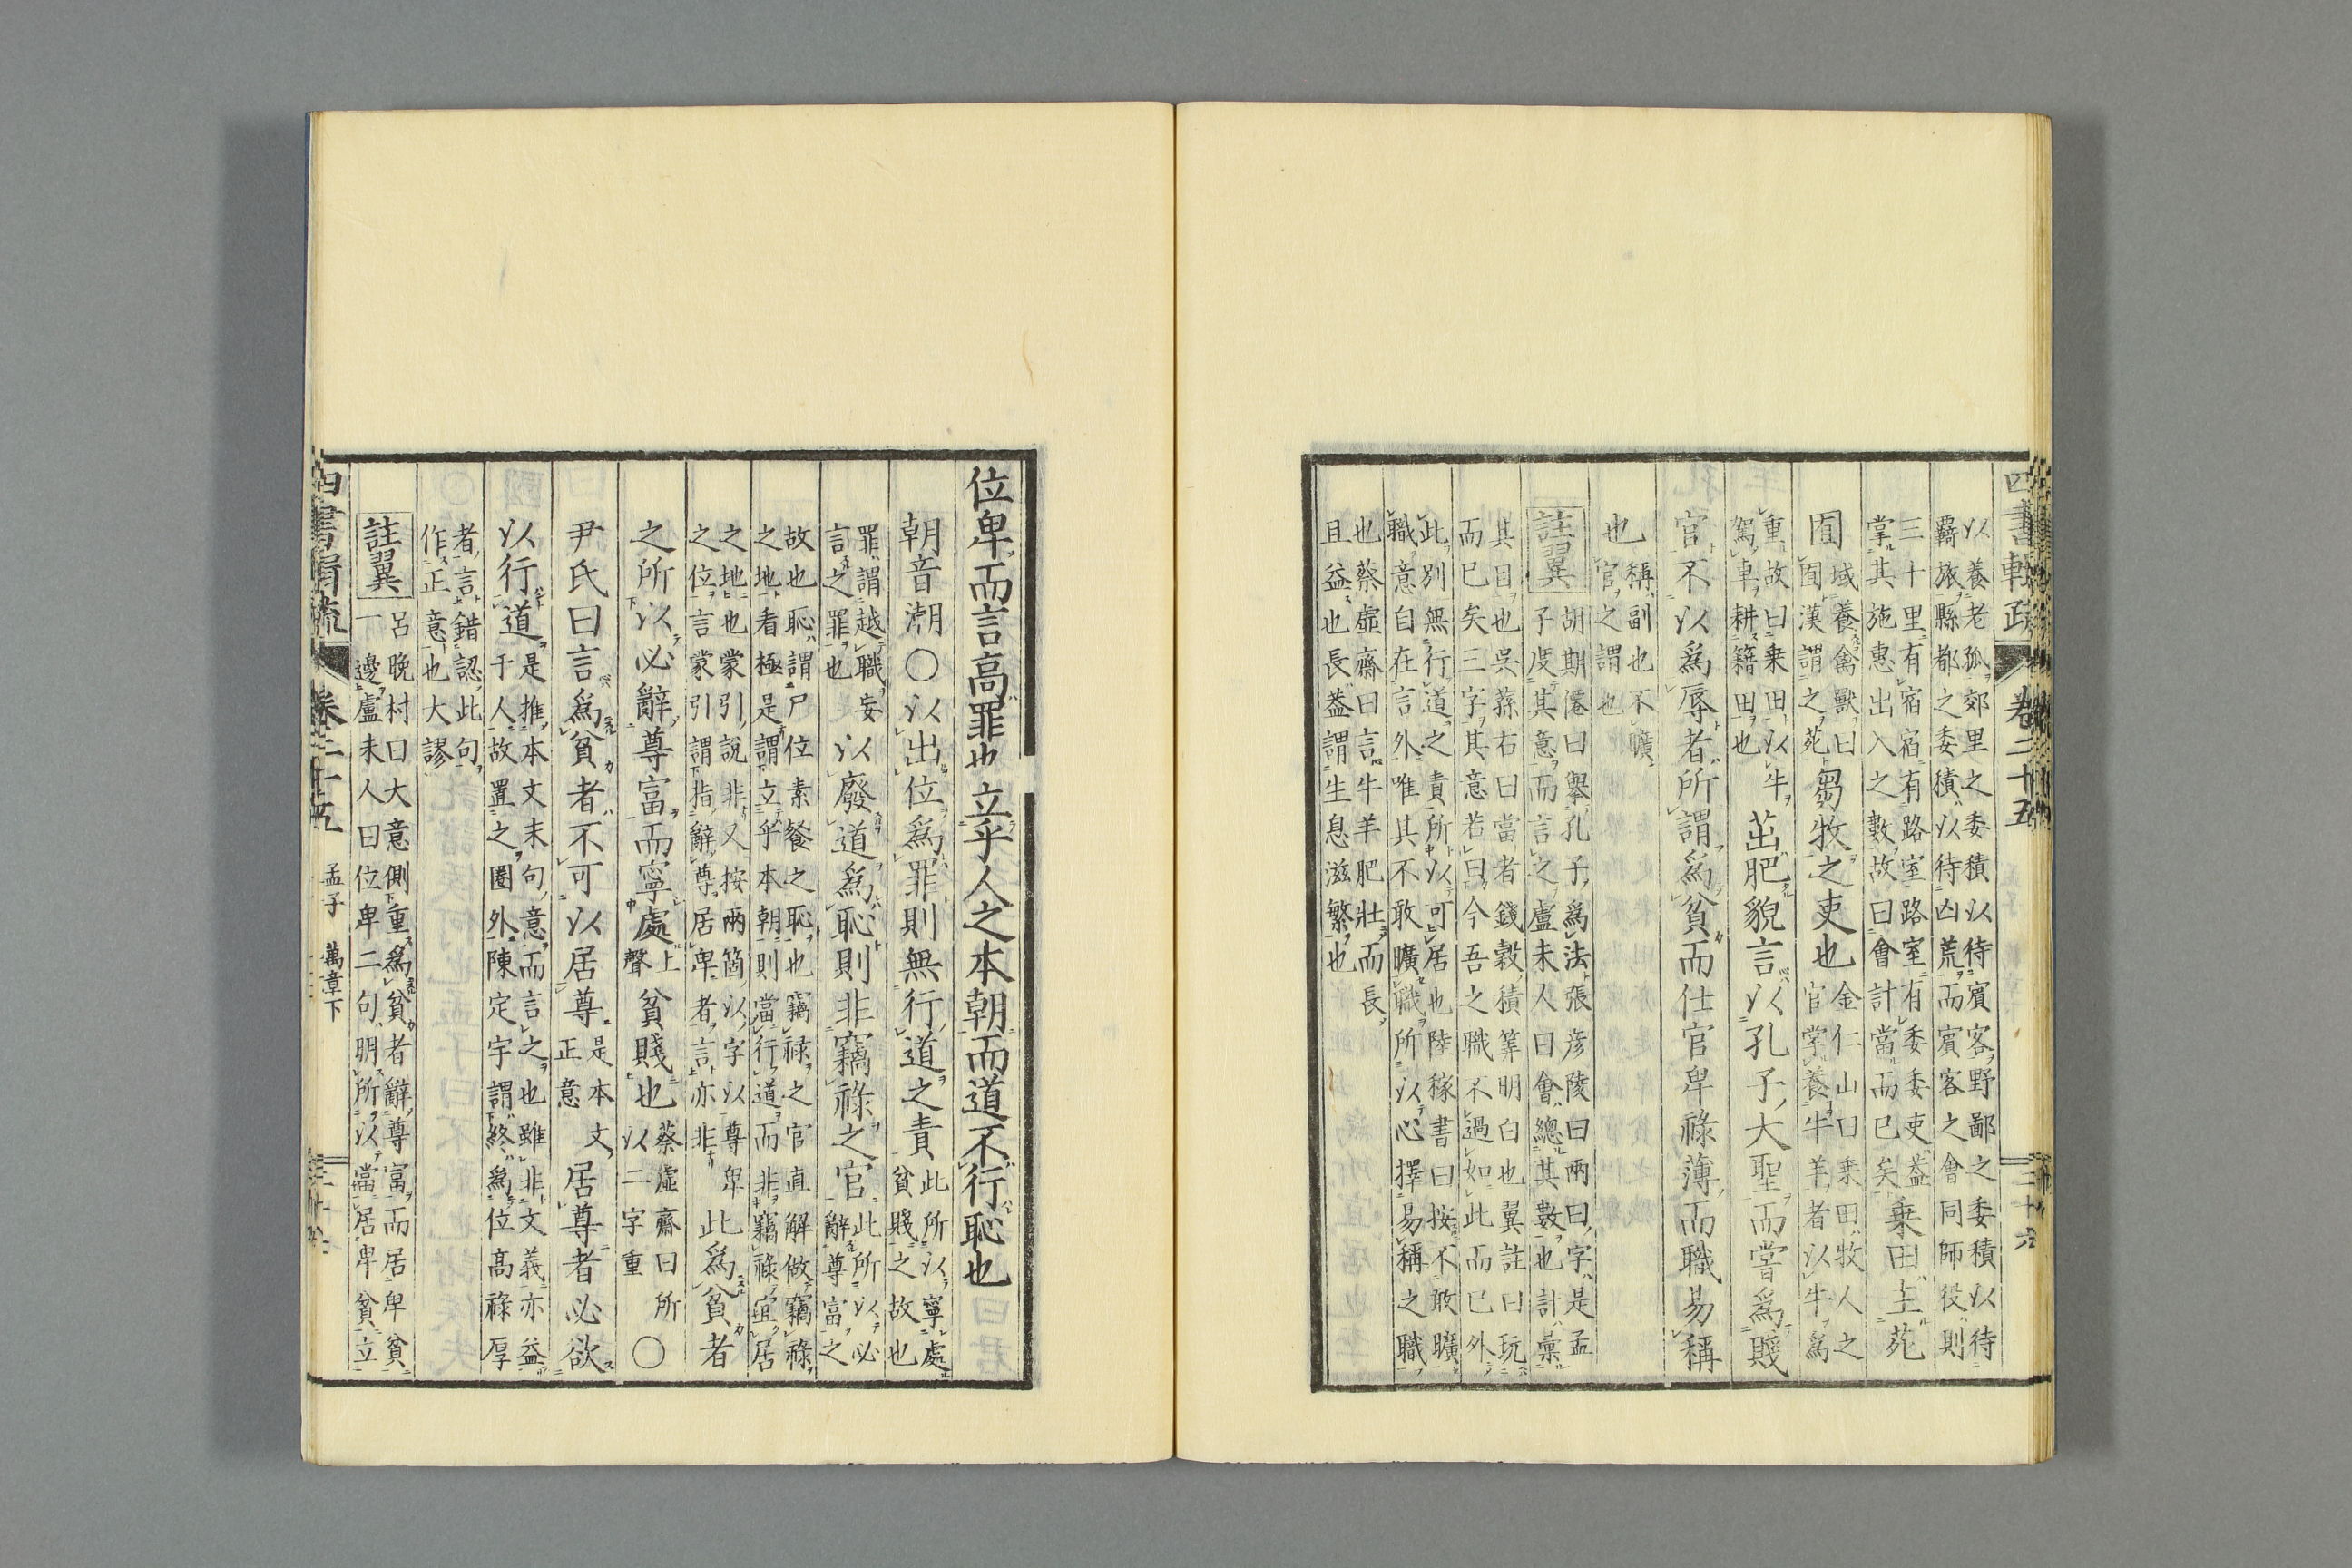 四書輯疏 卷二十五 二十六
以養老孤郊里之委積以待賓客野鄙之委積以待
羇旅縣都之委積以待凶荒而賓客之會同師役則
三十里有宿宿有路室路室有委委吏益
掌其施惠出入之數故曰會計當而已矣
乘田主苑
囿
域養禽獸曰
囿漢謂之苑
芻牧之吏也
金仁山曰乗田牧人之
官掌養牛羊者以牛爲
重故曰乗田以牛
駕車耕籍田也
茁肥貌言以孔子大聖而嘗爲賤
官不以爲辱者所謂爲貧而仕官卑祿薄而職易稱
也
稱副也不曠
官之謂也
註翼
胡期僊曰擧孔子爲法張彦陵曰兩曰字是孟
子度其意而言之盧未人曰會總其數也計彙
其目也吳蓀右曰當者錢穀積筭明白也翼註曰玩
而已矣三字其意若曰今吾之職不過如此而已外
此別無行道之責所以可居也陸稼書曰按不敢曠
職意自在言外唯其不敢曠職所以心擇易稱之職
也蔡虛齋曰言牛羊肥壯而長
且益也長益謂生息滋繁也
位卑而言高罪也立乎人之本朝而道不行恥也
朝音潮○以出位爲罪則無行道之責
此所以寧處
貧賤之故也
罪謂越職妄
言之罪也
以廢道爲恥則非竊祿之官
此所以必
辭尊富之
故也恥謂尸位素餐之恥也竊祿之官直解做竊祿
之地看極是謂立乎本朝則當行道而非竊祿宜居
之地也蒙引說非又按兩箇以字以尊卑
之位言蒙引謂指辭尊居卑者言亦非
此爲貧者
之所以必辭尊富而寧處
上
聲
貧賤也
蔡虛齋曰所
以二字重
○
尹氏曰言爲貧者不可以居尊
是本文
正意
居尊者必欲
以行道
是推本文末句意而言之也雖非文義亦益
于人故置之圈外陳定宇謂終爲位高祿厚
者言錯認此句
作正意也大謬
註翼
呂晚村曰大意側重爲貧者辭尊富而居卑貧
一邊盧未人曰位卑二句明所以當居卑貧立
四書輯疏 卷二十五 孟子 萬章下